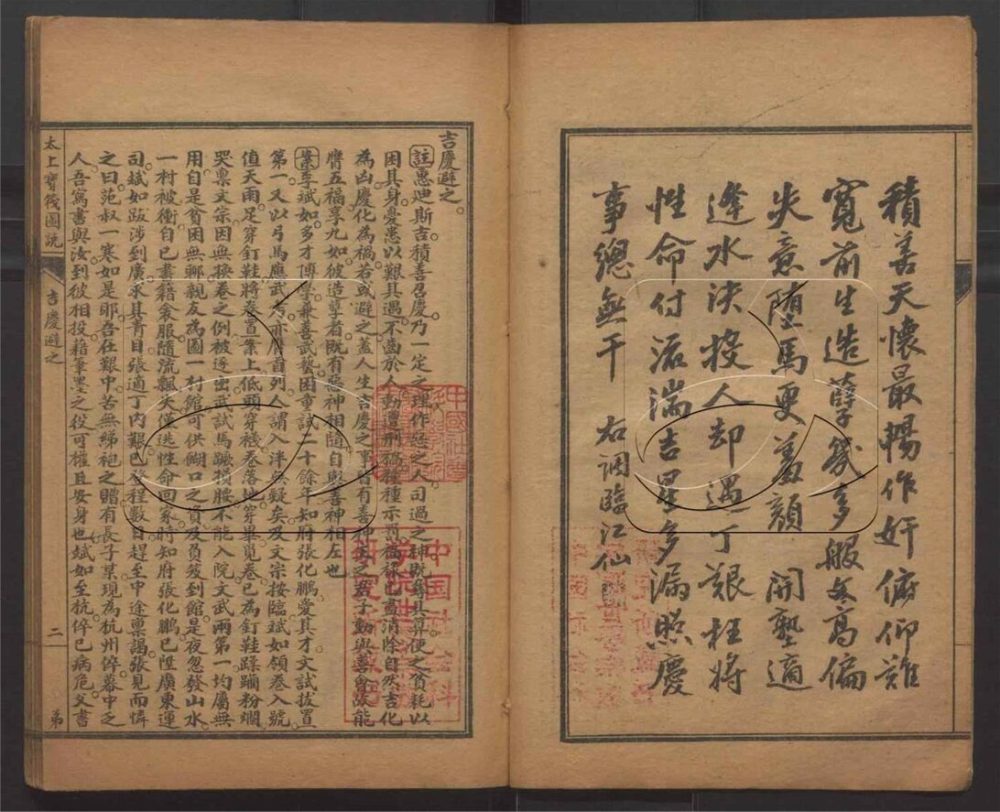 積善天懷最暢作奸俯仰誰
寬前生造孽幾多般文高偏
失意墮馬更羞顏 開塾適
逢水決投人却遇丁艱枉將
性命付流湍吉星多漏照慶
事總無干 右調臨江仙
吉慶避之。
註惠迪斯吉積善召慶乃一定之理作惡之人司過之神既為其算使之貧耗以
困其身憂患以艱其遇不齒於人動遭刑禍種種示罰福祿已盡消除自然吉化
為凶慶化為禍若或避之蓋人生吉慶之事皆有善神主之君子動與善會故能
膺五福享九如彼造孽者既有惡神相隨自與善神相左也
案李斌如多才博學兼善武藝困童試二十餘年知府張化鵬愛其才文試拔置
第一又以弓馬應武考亦膺首列人謂入泮無疑矣及文宗按臨斌如領卷入號
值天雨足穿釘鞋將卷置案上低頭穿襪卷落地穿畢覓卷已為釘鞋蹂躪粉爛
哭稟文宗因無換卷之例被逐出武試馬蹶損腰不能入院文武兩第一均屬無
用自是貧困無聊親友為圖一村館可供餬口之資及負笈到館是夜忽發山水
一村被衝自己書籍衾服隨流飄失僅逃性命回家時知府張化鵬已陞廣東運
司斌如跋涉到廣求其青目張適丁內艱已登程數日趕至中途稟謁張見而憐
之曰范叔一寒如是耶吾在艱中苦無綈袍之贈有長子某現為杭州倅幕中乏
人吾寫書與汝到彼相投藉筆墨之役可權且安身也斌如至杭倅已病危文書
太上寶筏圖説 吉慶避之 二 弟